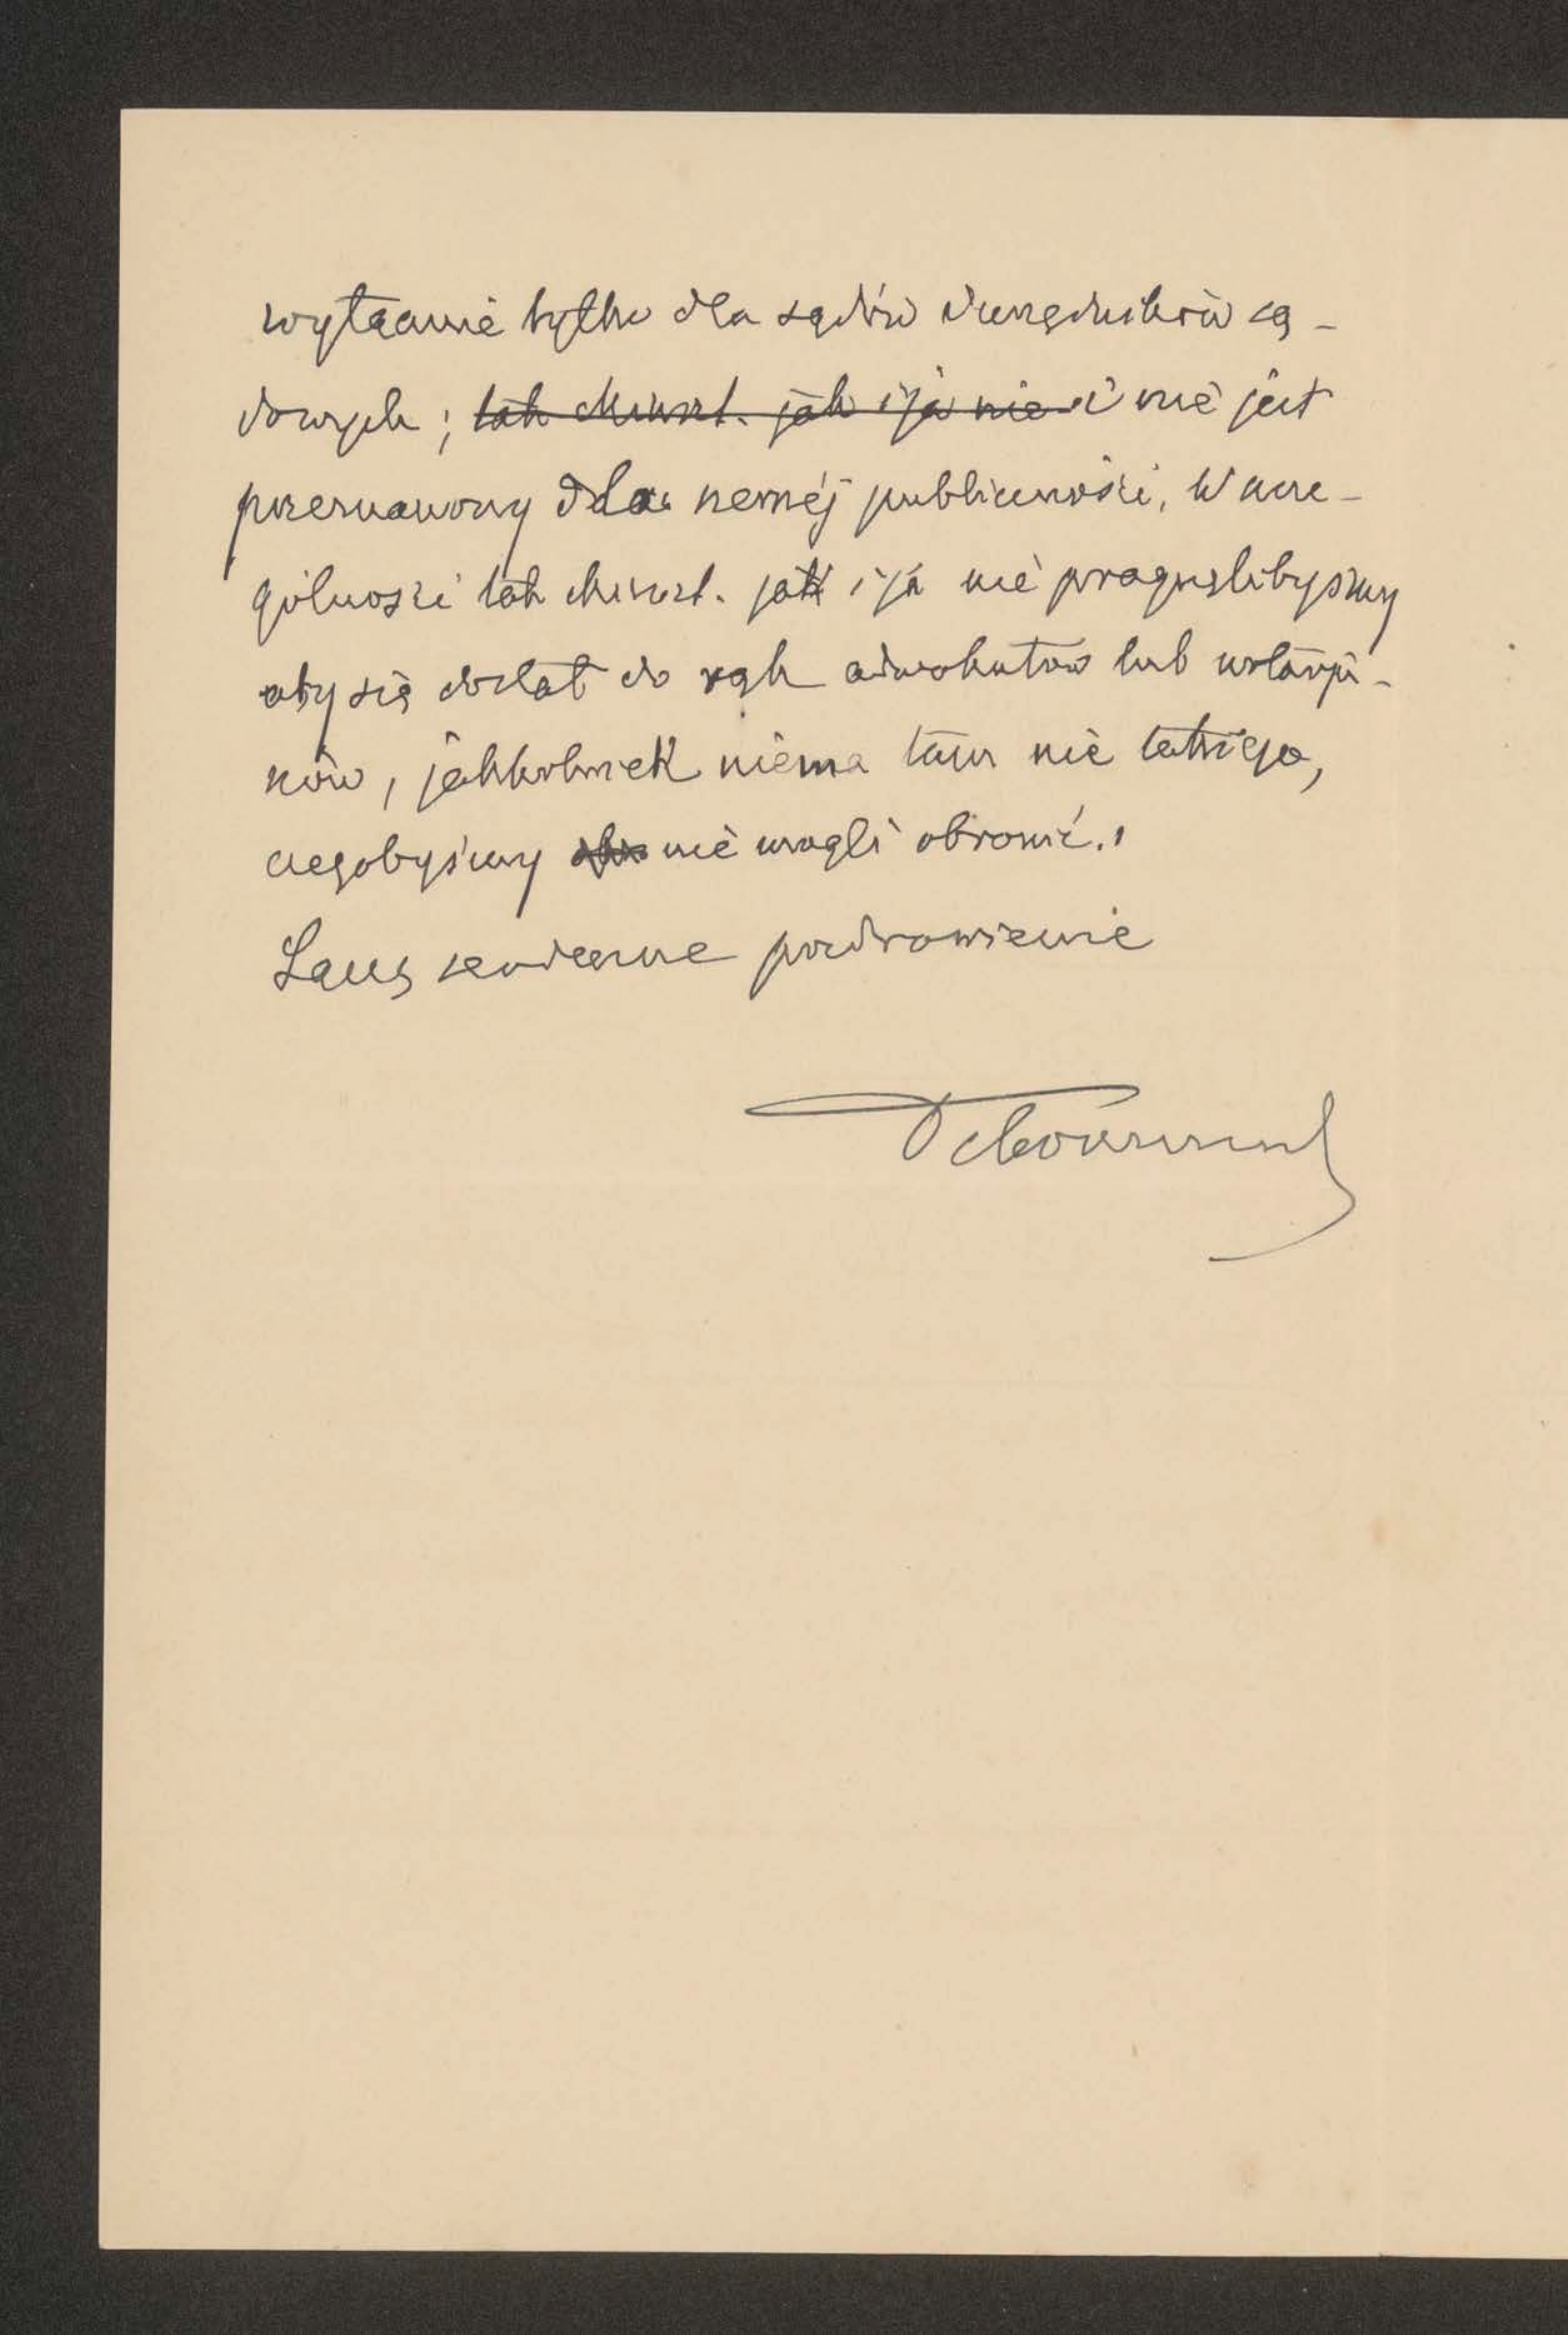 wyłącznie tylko dla sądów i urzędników są-
dowych; tak Minist. jak i ja nie i nie jest
przeznaczony dla szerszej publiczności. W szcze-
gólności tak Minist. jak i ja nie pragnęlibyśmy
aby się dostał do rąk adwokatów lub
jakkolwiek niema tam nic takiego,
czegobyśmy nie mogli obronić.
Łączę serdeczne pozdrowienie